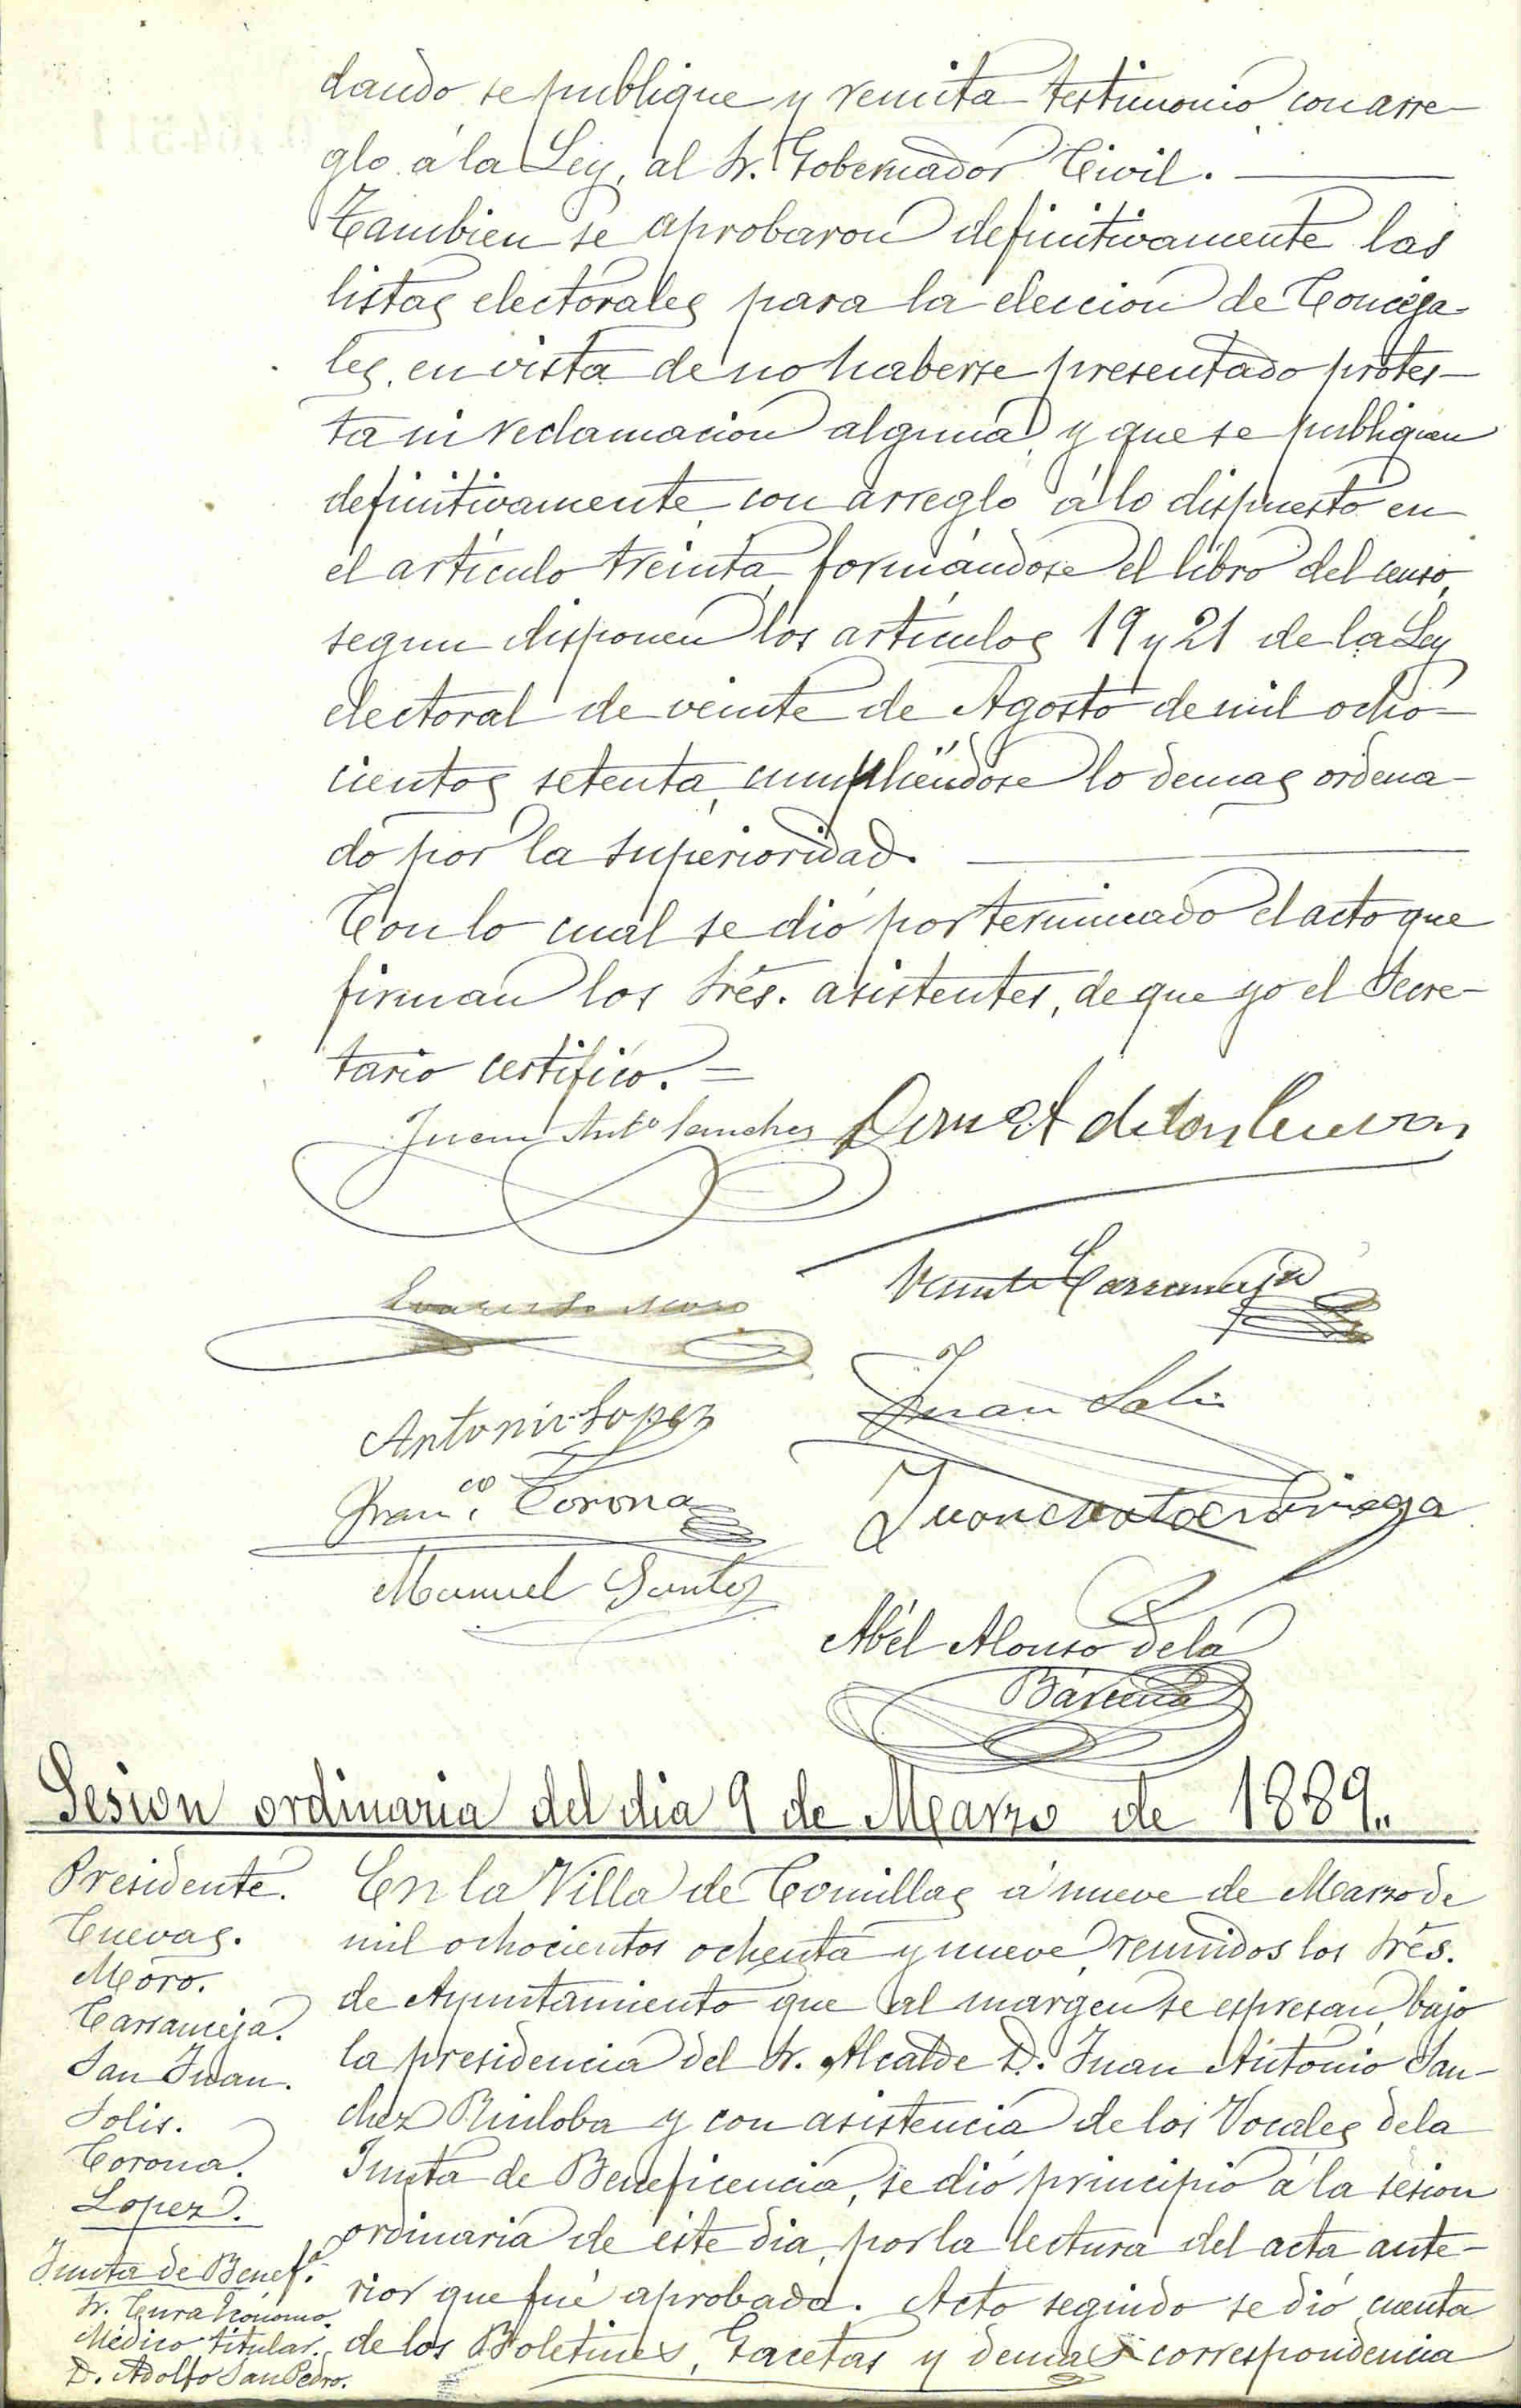 dando se publique y remita testimonio con arre-
glo á la Ley, al Sr. Gobernador Civil.
Tambien se aprobaron definitivamente las
listas electorales para la eleccion de Conceja-
les, en vista de no haberse presentado protes-
ta ni reclamacion alguna, y que se publiquen
definitivamente con arreglo á lo dispuesto en
el artículo treinta, formándose el libro del censo,
segun disponen los artículos 19 y 21 de la Ley
electoral de veinte de Agosto de mil ocho-
cientos setenta, cumpliéndose lo demas ordena-
do por la superioridad.
Con lo cual se dió por terminado el acto que
firman los Srés. asistentes, de que yo el Secre-
tario certifico.=
Juan Antº Sanchez
de las Cuevas
Moro
Vicente Carranceja
Antonio Lopez
Juan Solis
Franco. Corona
Juan
Manuel Santos
Abél Alonso de la
Bárcena
Sesion ordinaria del dia 9 de Marzo de 1889..
Presidente.
Cuevas.
Moro.
Carranceja.
San Juan.
Solis.
Corona.
Lopez.
Junta de Benef.ª
Sr. Cura Ecónomo.
Médico titular.
D. Adolfo San Pedro.
En la Villa de Comillas á nueve de Marzo de
mil ochocientos ochenta y nueve, reunidos los Srés.
de Ayuntamiento que al margen se espresan, bajo
la presidencia del Sr. Alcalde D. Juan Antonio San-
chez Ruiloba y con asistencia de los Vocales de la
Junta de Beneficencia, se dió principio á la sesion
ordinaria de este dia, por la lectura del acta ante-
rior que fué aprobada. Acto seguido se dió cuenta
de los Boletines, Gacetas y demas correspondencia